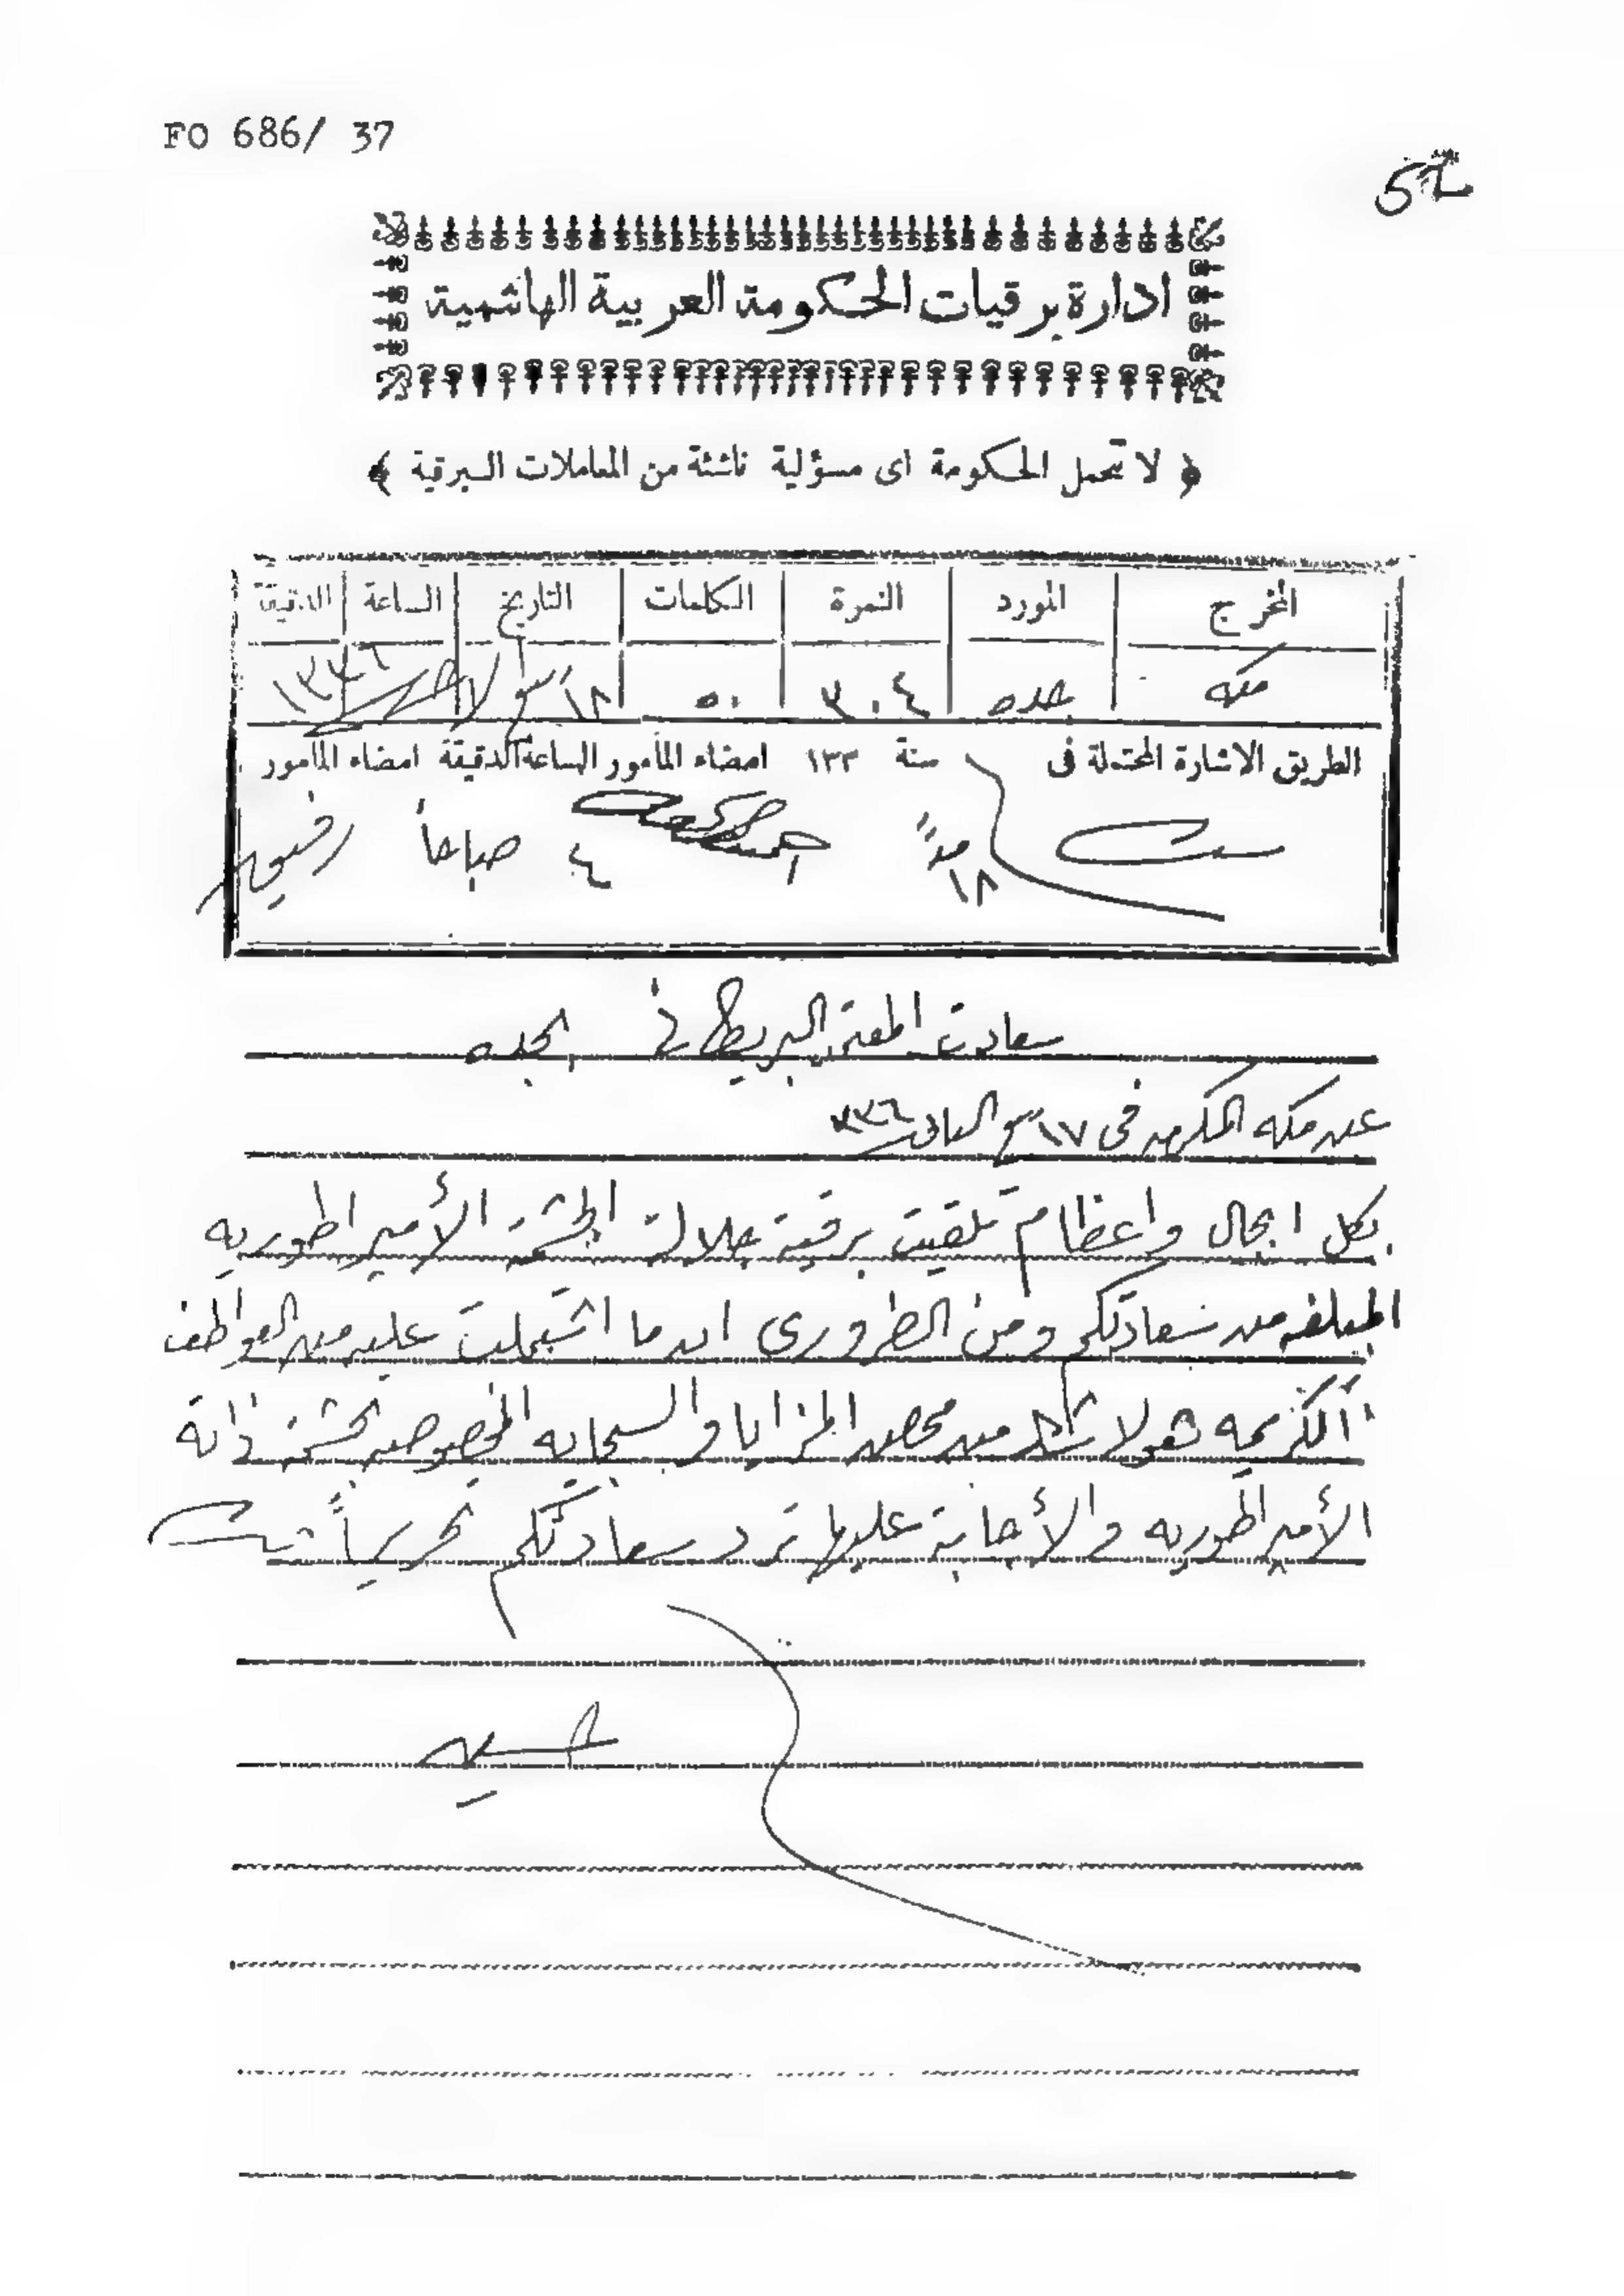 FO 686/ 37
52
ادارة برقيات الحكومة العربية الهاشمية
﴿ لا تتحمل الحكومة اى مسؤلية ناشئة من المعاملات البرقية ﴾
المخرج المورد النمرة الكلمات التاريخ الساعة الدقيقة
مكه جده ٣٠٤ ٥٠ ١٨ ١٣٣٦
الطريق الاشارة المحتملة فى سنة ١٣٣ امضاء المأمور الساعة الدقيقة امضاء المأمور
١٨ منه ٤ صباحاً رفيق
سعادت المعتمد البريطاني بجده
عن مكه المكرمه فى ١٧ ربيع الثانى ٣٣٦
بكل اجلال واعظام تلقيت برقية جلالة الحشمة الأمبراطوريه
المبلغه من سعادتكم ومن الضرورى ان ما اشتملت عليه من العواطف
الكريمه من محض المزايا والسجايه المخصوصه بحشمة ذاته
الأمبراطوريه والأجابة عليها ترد سعادتكم تحريراً
حسين